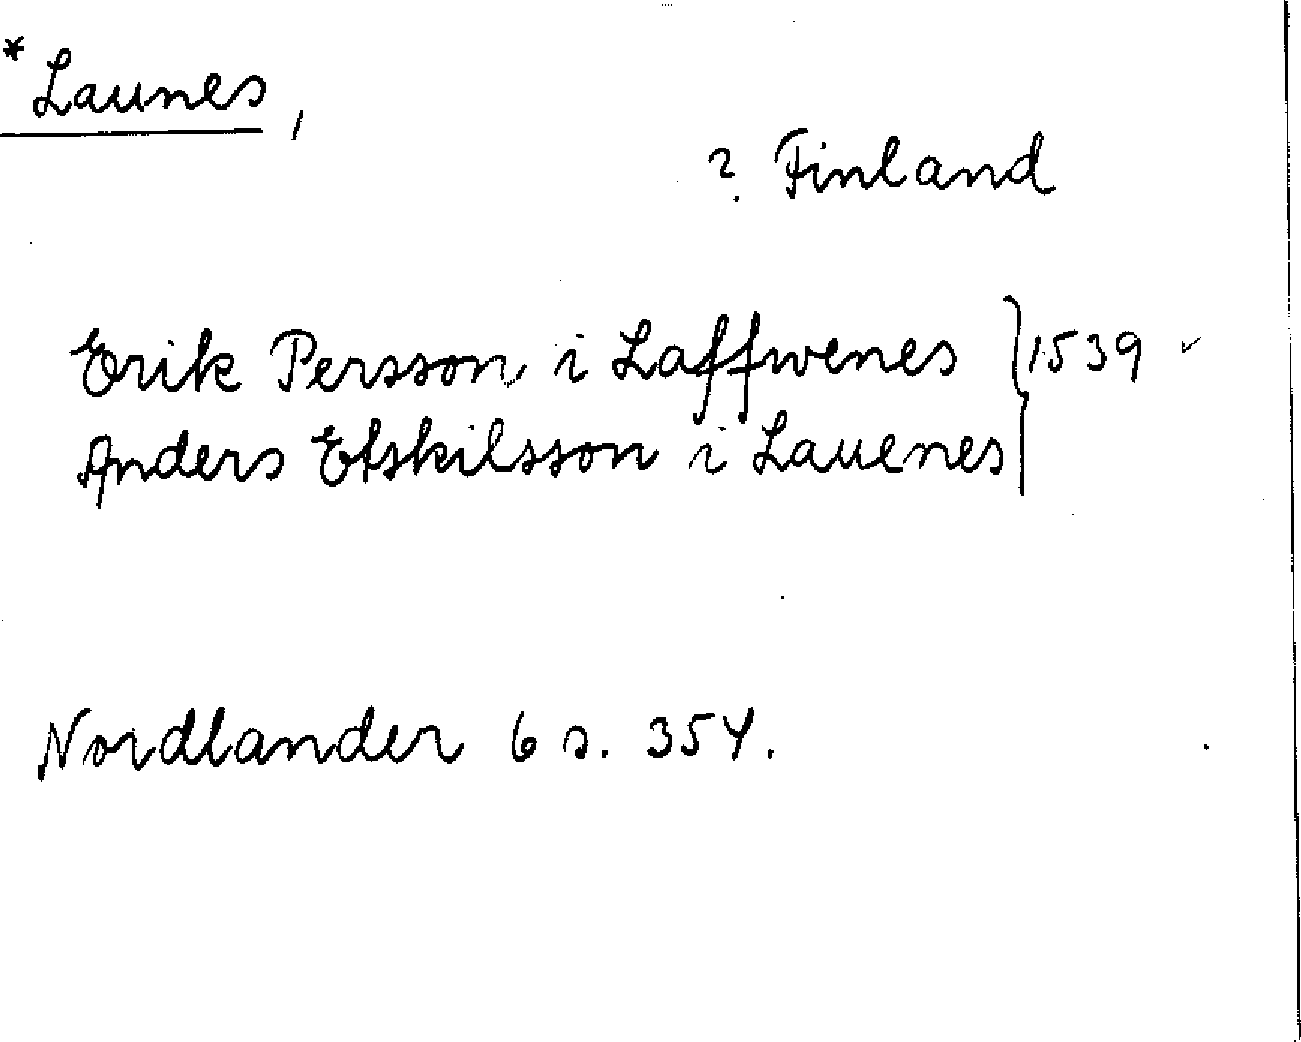 * Launes,
? Finland
Erik Persson i Laffwenes } 1539
Anders Etskilsson i Lauenes
Nordlander 6 s. 354.